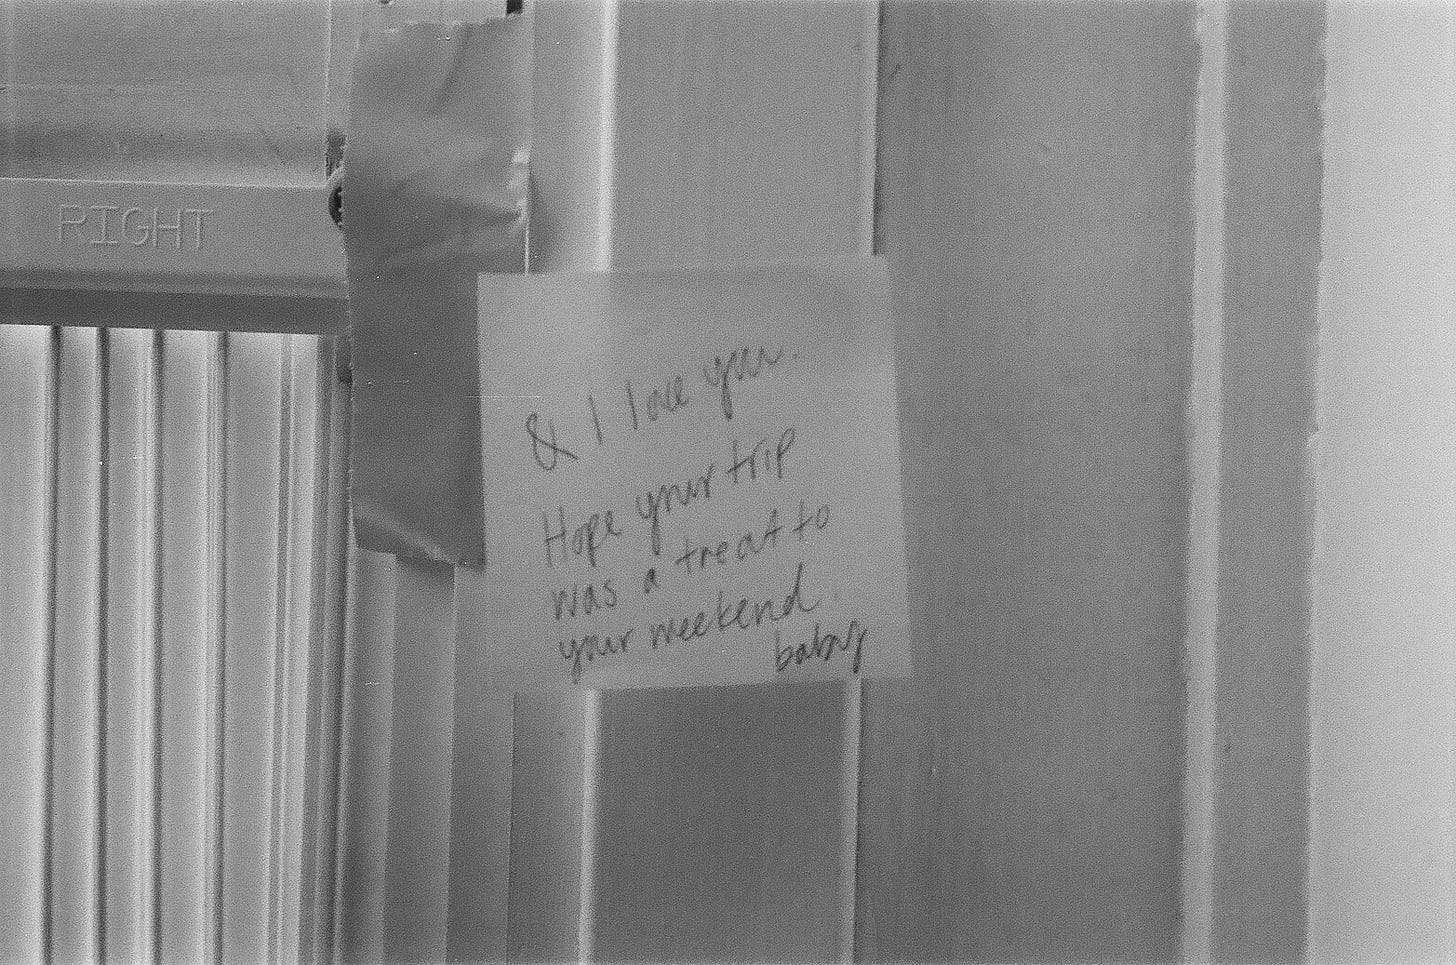 RIGHT
& I love you.
Hope your trip
was a treat to
your weekend.
baby